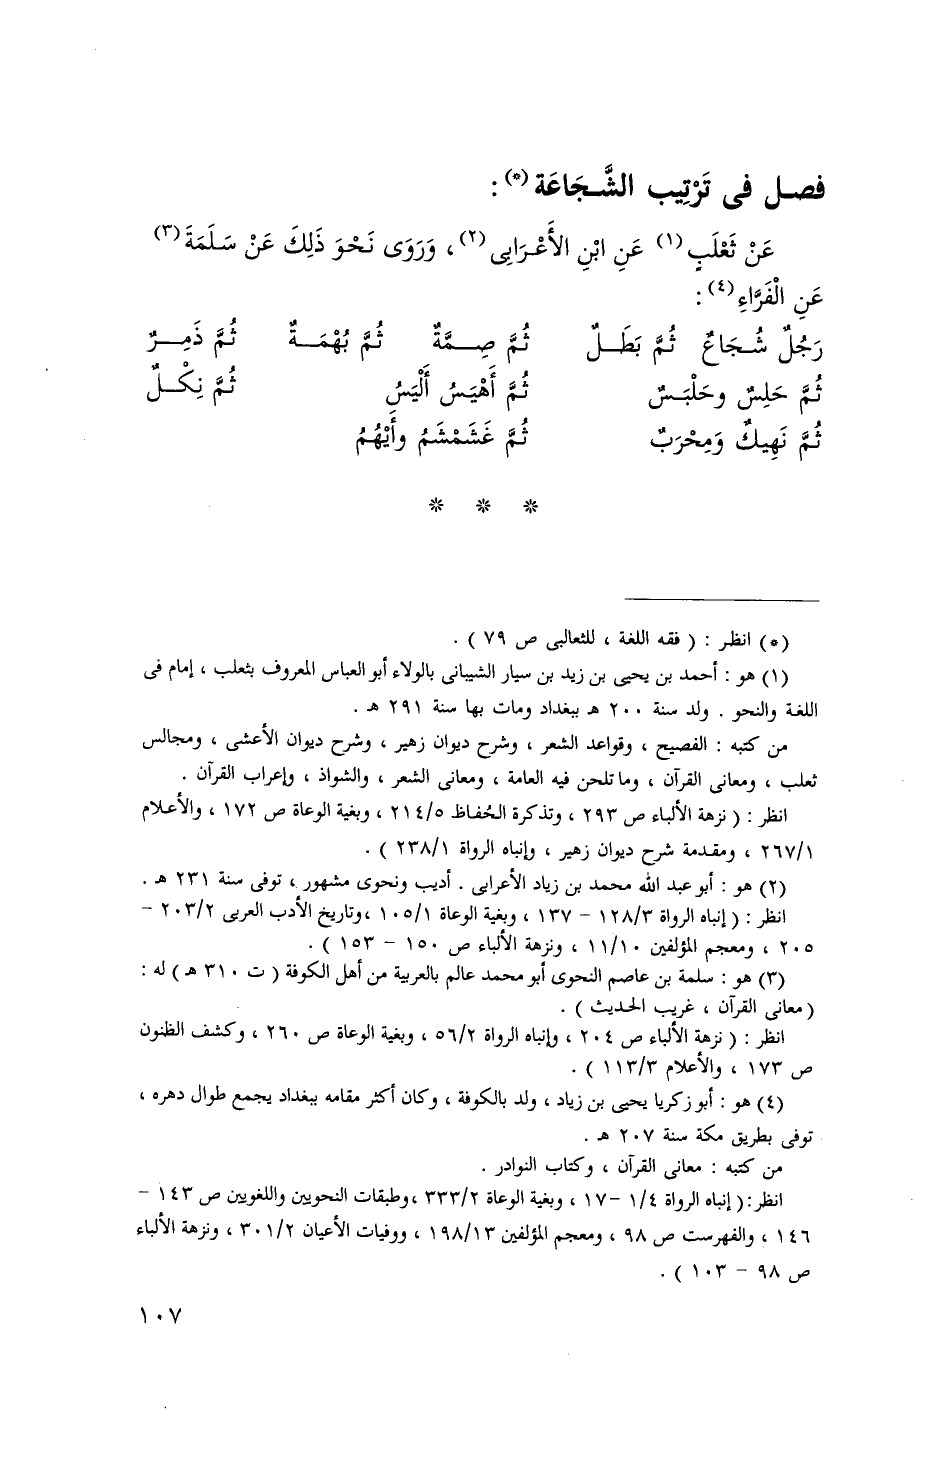 فصل فى تَرْتِيب الشَّجَاعَة (*) :
عَنْ ثَعْلَبٍ (١) عَنِ ابْنِ الأَعْرَابِى (٢) ، وَرَوَى نَحْوَ ذَلِكَ عَنْ سَلَمَةَ (٣)
عَنِ الْفَرَّاءِ (٤) :
رَجُلٌ شُجَاعٌ ثُمَّ بَطَلٌ ثُمَّ صِمَّةٌ ثُمَّ بُهْمَةٌ ثُمَّ ذَمِرٌ
ثُمَّ حَلِسٌ وحَلْبَسٌ ثُمَّ أَهْيَسُ أَلْيَسُ ثُمَّ نِكْلٌ
ثُمَّ نَهِيكٌ وَمِحْرَبٌ ثُمَّ غَشَمْشَمُ وأَيْهُمُ
* * *
(*) انظر : ( فقه اللغة ، للثعالبى ص ٧٩ ) .
(١) هو : أحمد بن يحيى بن زيد بن سيار الشيبانى بالولاء أبو العباس المعروف بثعلب ، إمام فى
اللغة والنحو . ولد سنة ٢٠٠ هـ ببغداد ومات بها سنة ٢٩١ هـ .
من كتبه : الفصيح ، وقواعد الشعر ، وشرح ديوان زهير ، وشرح ديوان الأعشى ، ومجالس
ثعلب ، ومعانى القرآن ، وما تلحن فيه العامة ، ومعانى الشعر ، والشواذ ، وإعراب القرآن .
انظر : ( نزهة الألباء ص ٢٩٣ ، وتذكرة الحُفاظ ٢١٤/٥ ، وبغية الوعاة ص ١٧٢ ، والأعلام
٢٦٧/١ ، ومقدمة شرح ديوان زهير ، وإنباه الرواة ٢٣٨/١ ) .
(٢) هو : أبو عبد الله محمد بن زياد الأعرابى . أديب ونحوى مشهور ، توفى سنة ٢٣١ هـ .
انظر : ( إنباه الرواة ١٢٨/٣ – ١٣٧ ، وبغية الوعاة ١٠٥/١ ، وتاريخ الأدب العربى ٢٠٣/٢ –
٢٠٥ ، ومعجم المؤلفين ١١/١٠ ، ونزهة الألباء ص ١٥٠ – ١٥٣ ) .
(٣) هو : سلمة بن عاصم النحوى أبو محمد عالم بالعربية من أهل الكوفة ( ت ٣١٠ هـ ) له :
( معانى القرآن ، غريب الحديث ) .
انظر : ( نزهة الألباء ص ٢٠٤ ، وإنباه الرواة ٥٦/٢ ، وبغية الوعاة ص ٢٦٠ ، وكشف الظنون
ص ١٧٣ ، والأعلام ١١٣/٣ ) .
(٤) هو : أبو زكريا يحيى بن زياد ، ولد بالكوفة ، وكان أكثر مقامه ببغداد يجمع طوال دهره ،
توفى بطريق مكة سنة ٢٠٧ هـ .
من كتبه : معانى القرآن ، وكتاب النوادر .
انظر : ( إنباه الرواة ١/٤ – ١٧ ، وبغية الوعاة ٣٣٣/٢ ، وطبقات النحويين واللغويين ص ١٤٣ –
١٤٦ ، والفهرست ص ٩٨ ، ومعجم المؤلفين ١٩٨/١٣ ، ووفيات الأعيان ٣٠١/٢ ، ونزهة الألباء
ص ٩٨ – ١٠٣ ) .
١٠٧